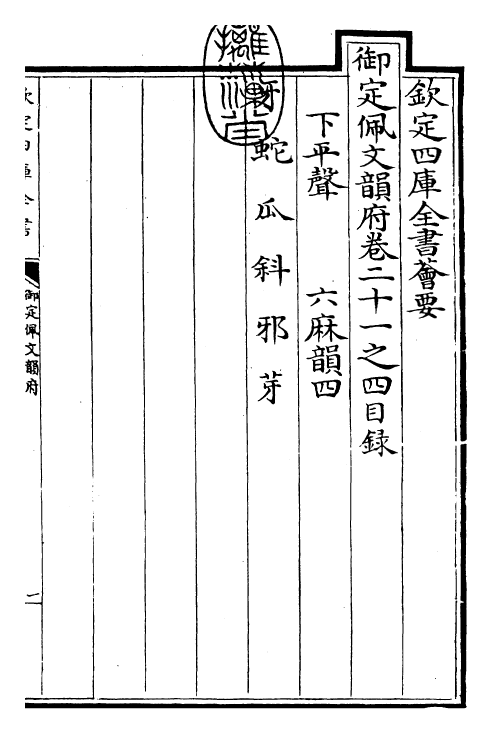 欽定四庫全書薈要
御定佩文韻府卷二十一之四目録
下平聲 六麻韻四
蛇 瓜 斜 邪 芽
欽定四庫全書
御定佩文韻府
一